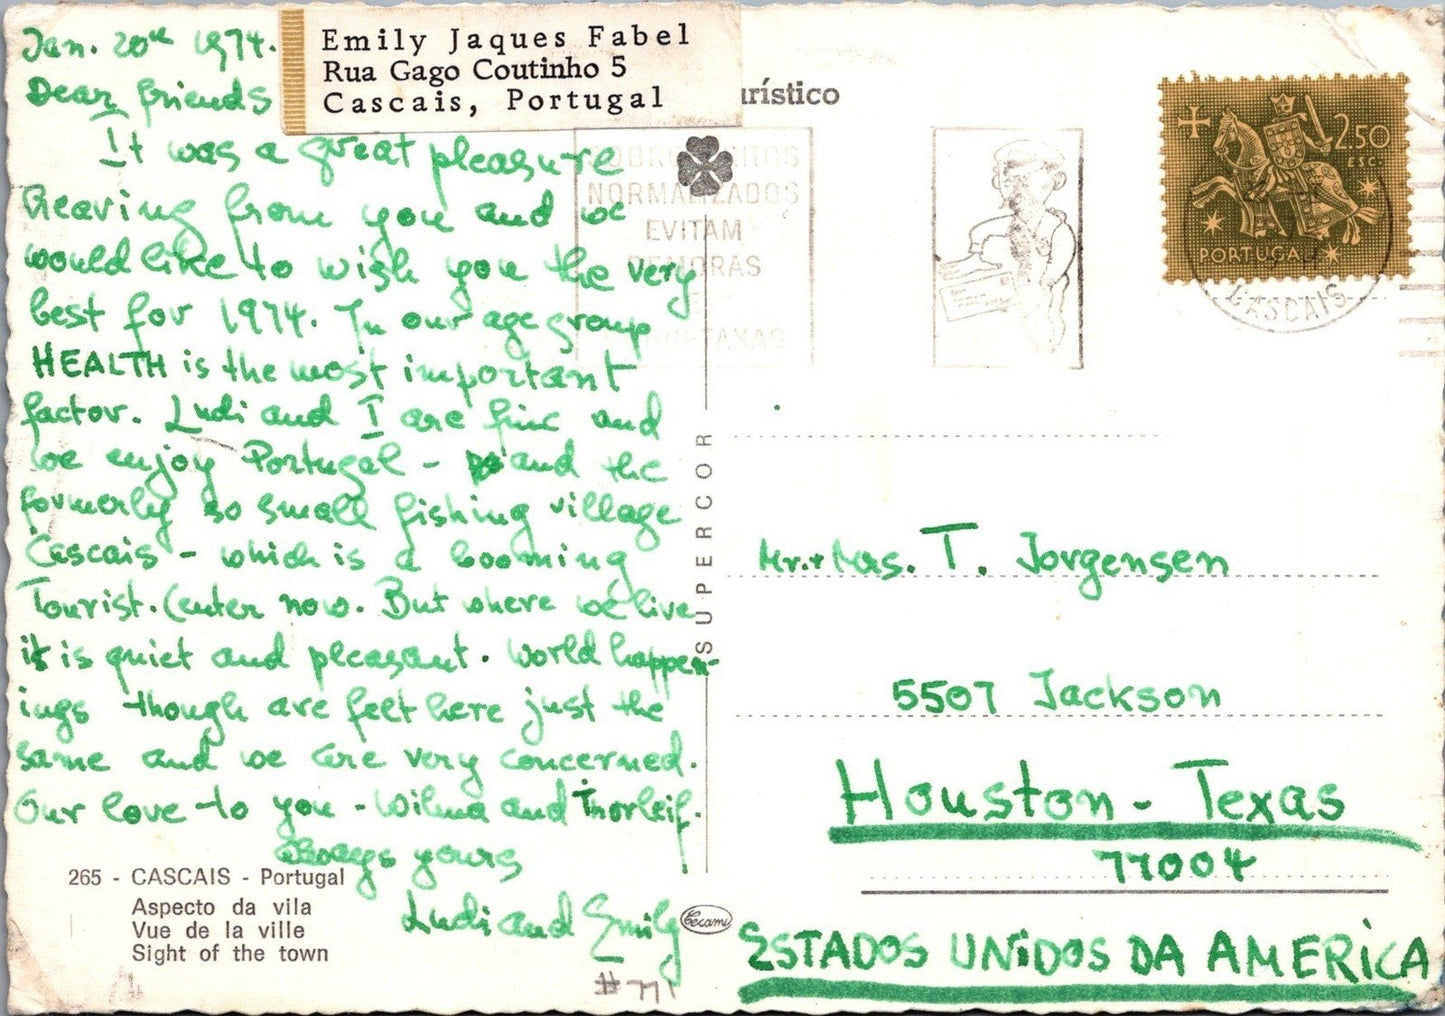 Jan. 20th 1974.
Emily Jaques Fabel
Rua Gago Coutinho 5
Cascais, Portugal
urístico
Dear friends
It was a great pleasure
hearing from you and we
would like to wish you the very
best for 1974. In our age group
HEALTH is the most important
factor. Ludi and I are fine and
we enjoy Portugal - and the
formerly so small fishing village
Cascais - which is a booming
Tourist. Center now. But where we live
it is quiet and pleasant. World happen-
ings though are felt here just the
same and we are very concerned.
Our love to you - Wilma and Thorleif.
Always yours
Ludi and Emily
# 771
265 - CASCAIS - Portugal
Aspecto da vila
Vue de la ville
Sight of the town
SUPERCOR
Cecami
NORMALIZADOS
EVITAM
DEMORAS
2.50
ESC.
PORTUGAL
CASCAIS
Mr. + Mrs. T. Jorgensen
5507 Jackson
Houston - Texas
77004
ESTADOS UNiDOS DA AMERiCA